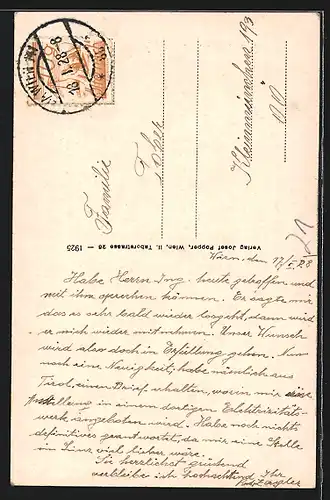 Familie
Kleinmünchen 193
O.Ö.
Verlag Josef Popper, Wien, II. Taborstrasse 26 — 1925
Wien, den 17/I. 28
Habe Herrn Ing. heute getroffen und
mit ihm sprechen können. Er sagte mir
dass es sehr bald wieder losgeht, dann wird
er mich wieder mitnehmen. Unser Wunsch
wird also doch in Erfüllung gehen. Nun
noch eine Neuigkeit, habe nämlich aus
Tirol, einen Brief erhalten, worin mir eine
Stellung in einem dortigen Elektrizitäts-
werk angeboten wird. Habe noch nichts
definitives geantwortet, da mir eine Stelle
in Linz viel lieber wäre.
Sie herzlichst grüssend
verbleibe ich hochachtend Ihr